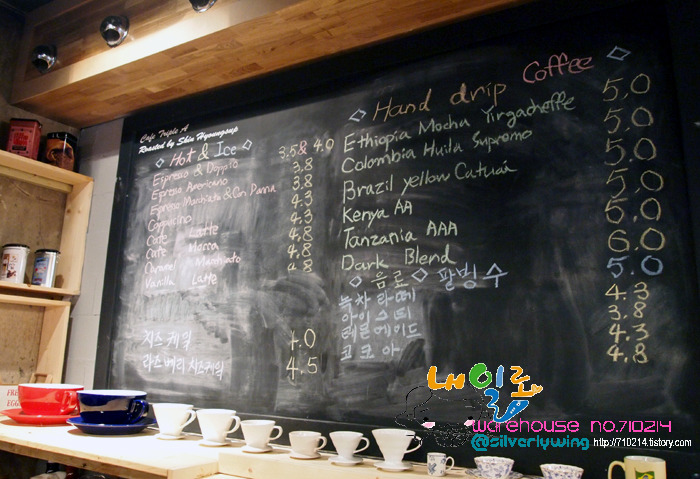 Cafe Triple A
Roasted by Shin Hyoungsup
◇ Hot & Ice ◇
3.5 & 4.0
Espresso & Doppio 3.8
Espresso Americano 3.8
Espresso Macchiato & Con Panna 4.3
Cappucino 4.3
Cafe Latte 4.8
Cafe Mocca 4.8
Caramel Macchiato 4.8
Vanilla Latte
치즈케익 4.0
라즈베리 치즈케익 4.5
◇ Hand drip Coffee ◇
Ethiopia Mocha Yirgacheffe 5.0
Colombia Huila Supremo 5.0
Brazil yellow Catuai 5.0
Kenya AA 5.0
Tanzania AAA 5.0
Dark Blend 6.0
◇ 음료 ◇ 팥빙수 5.0
녹차라떼 4.3
아이스티 3.8
레몬에이드 4.3
코코아 4.8
내일롬
warehouse no.710214
@silverlywing http://710214.tistory.com